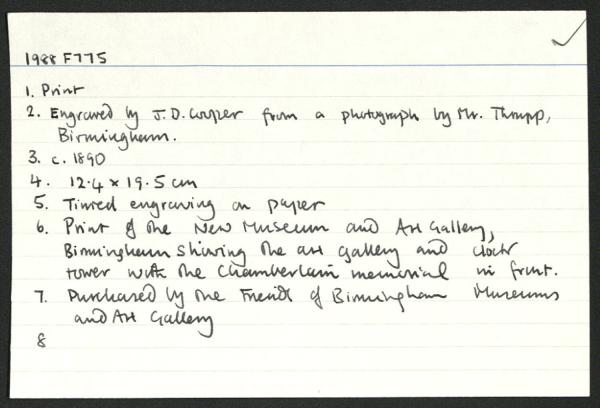 1988 F775
1. Print
2. Engraved by J.D. Cooper from a photograph by Mr. Thrupp,
Birmingham.
3. c. 1890
4. 12.4 x 19.5 cm
5. Tinted engraving on paper
6. Print of the New Museum and Art Gallery,
Birmingham showing the art gallery and clock
tower with the Chamberlain memorial in front.
7. Purchased by the Friends of Birmingham Museums
and Art Gallery
8